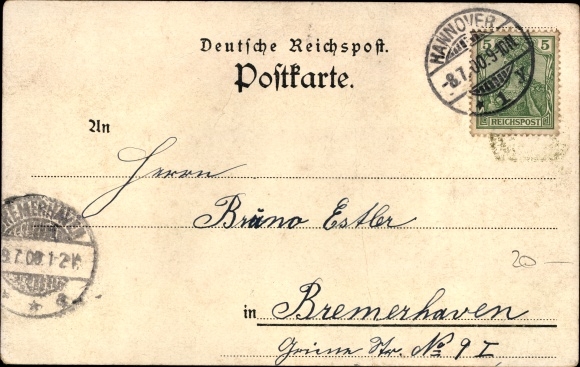 HANNOVER
-8.7.00.9-10N.
1 A
5 5
REICHSPOST
Deutsche Reichspost.
Postkarte.
An
Herrn
Bruno Estler
BREMERHAVEN
9.7.00.1-2N.
20 —
in Bremerhaven
Grüne Str. No 9 I